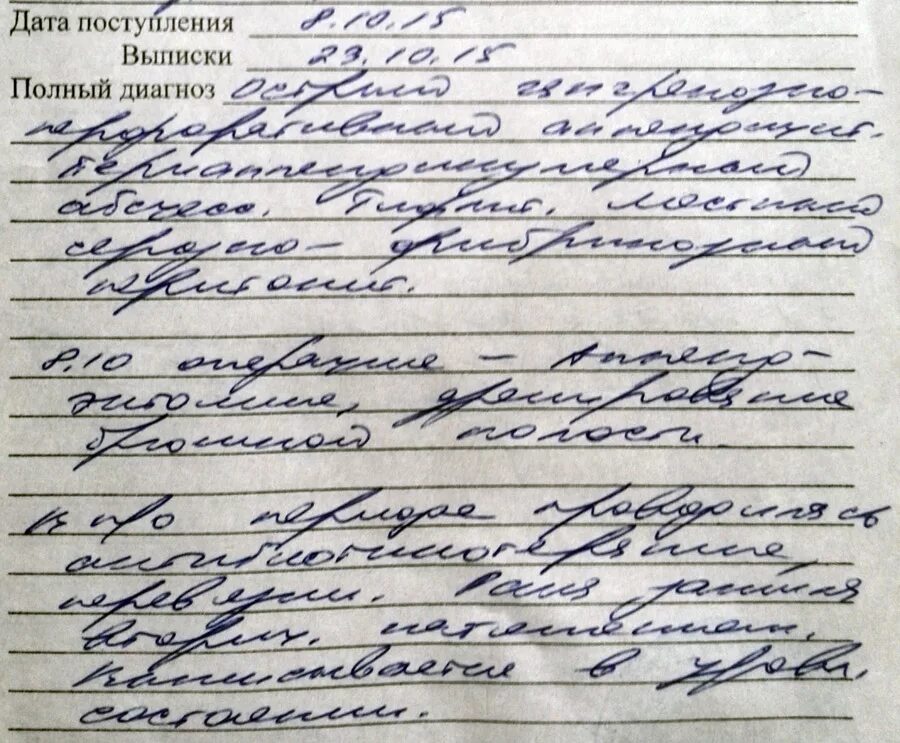 Дата поступления 8.10.15
Выписки 23.10.15
Полный диагноз Острый гангренозно-
перфоративный аппендицит.
Периаппендикулярный
абсцесс. Тифлит. Местный
серозно-фибринозный
перитонит.
8.10 операция - Аппенд-
эктомия, дренирование
брюшной полости.
В п/о периоде проводилась
антибиотикотерапия,
перевязки. Рана зажила
вторич. натяжением.
Выписывается в удовл.
состоянии.